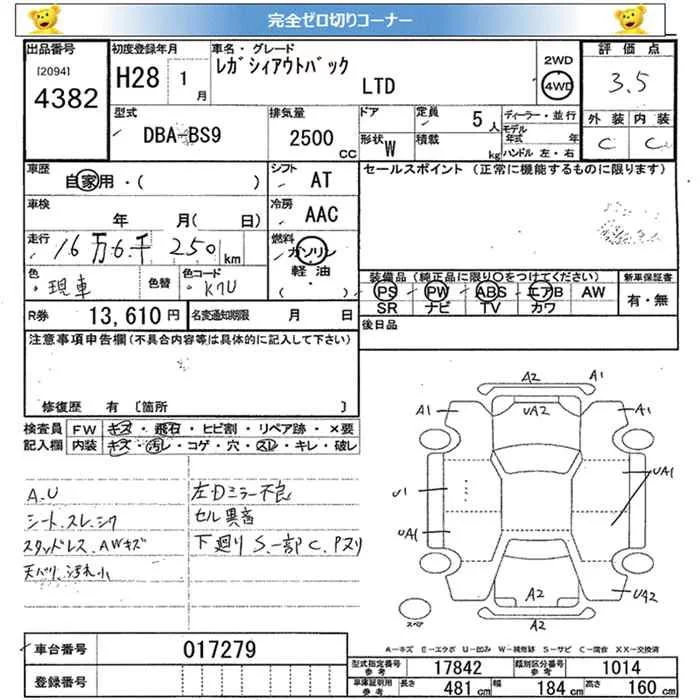 完全ゼロ切りコーナー
出品番号 初度登録年月 車名・グレード 2WD 評価点
[2094] H28 1月 レガシィアウトバック 4WD 3.5
4382 LTD
外装 内装
型式 排気量 ドア 定員 5人 ディーラー・並行
DBA-BS9 2500cc 形状 W 積載 kg モデル年式 年 C C
ハンドル 左・右
車歴 シフト セールスポイント (正常に機能するものに限ります)
自家用・( ) AT
車検 冷房
年 月(日) AAC
走行 燃料
16万6千250km ガソリン
軽油
( )
色 色替 色コード 装備品 (純正品に限り○をつけてください) 新車保証書
現車 K7U PS PW ABS エアB AW 有・無
SR ナビ TV カワ
R券 13,610円 名変通知期限 月 日 後日品
注意事項申告欄(不具合内容等は具体的に記入して下さい)
修復歴 有 [箇所 ]
検査員 FW キズ・飛石・ヒビ割・リペア跡・×要
記入欄 内装 キズ・汚レ・コゲ・穴・スレ・キレ・破レ
A.U 左Dミラー不良
シート.スレ.シワ セル異音
スタッドレス.AWキズ 下廻りS.一部C.Pヌリ
天バリ.汚れ小
A2 A1
A1 UA2 A1
U1 UA1
UA1
A2 UA2
A2
スペア
A-キズ E-エクボ U-凹み W-補修跡 S-サビ C-腐食 XX-交換済
車台番号 017279
型式指定番号 参考 17842 類別区分番号 参考 1014
登録番号
車庫証明用 参考 長さ 481cm 幅 184cm 高さ 160cm